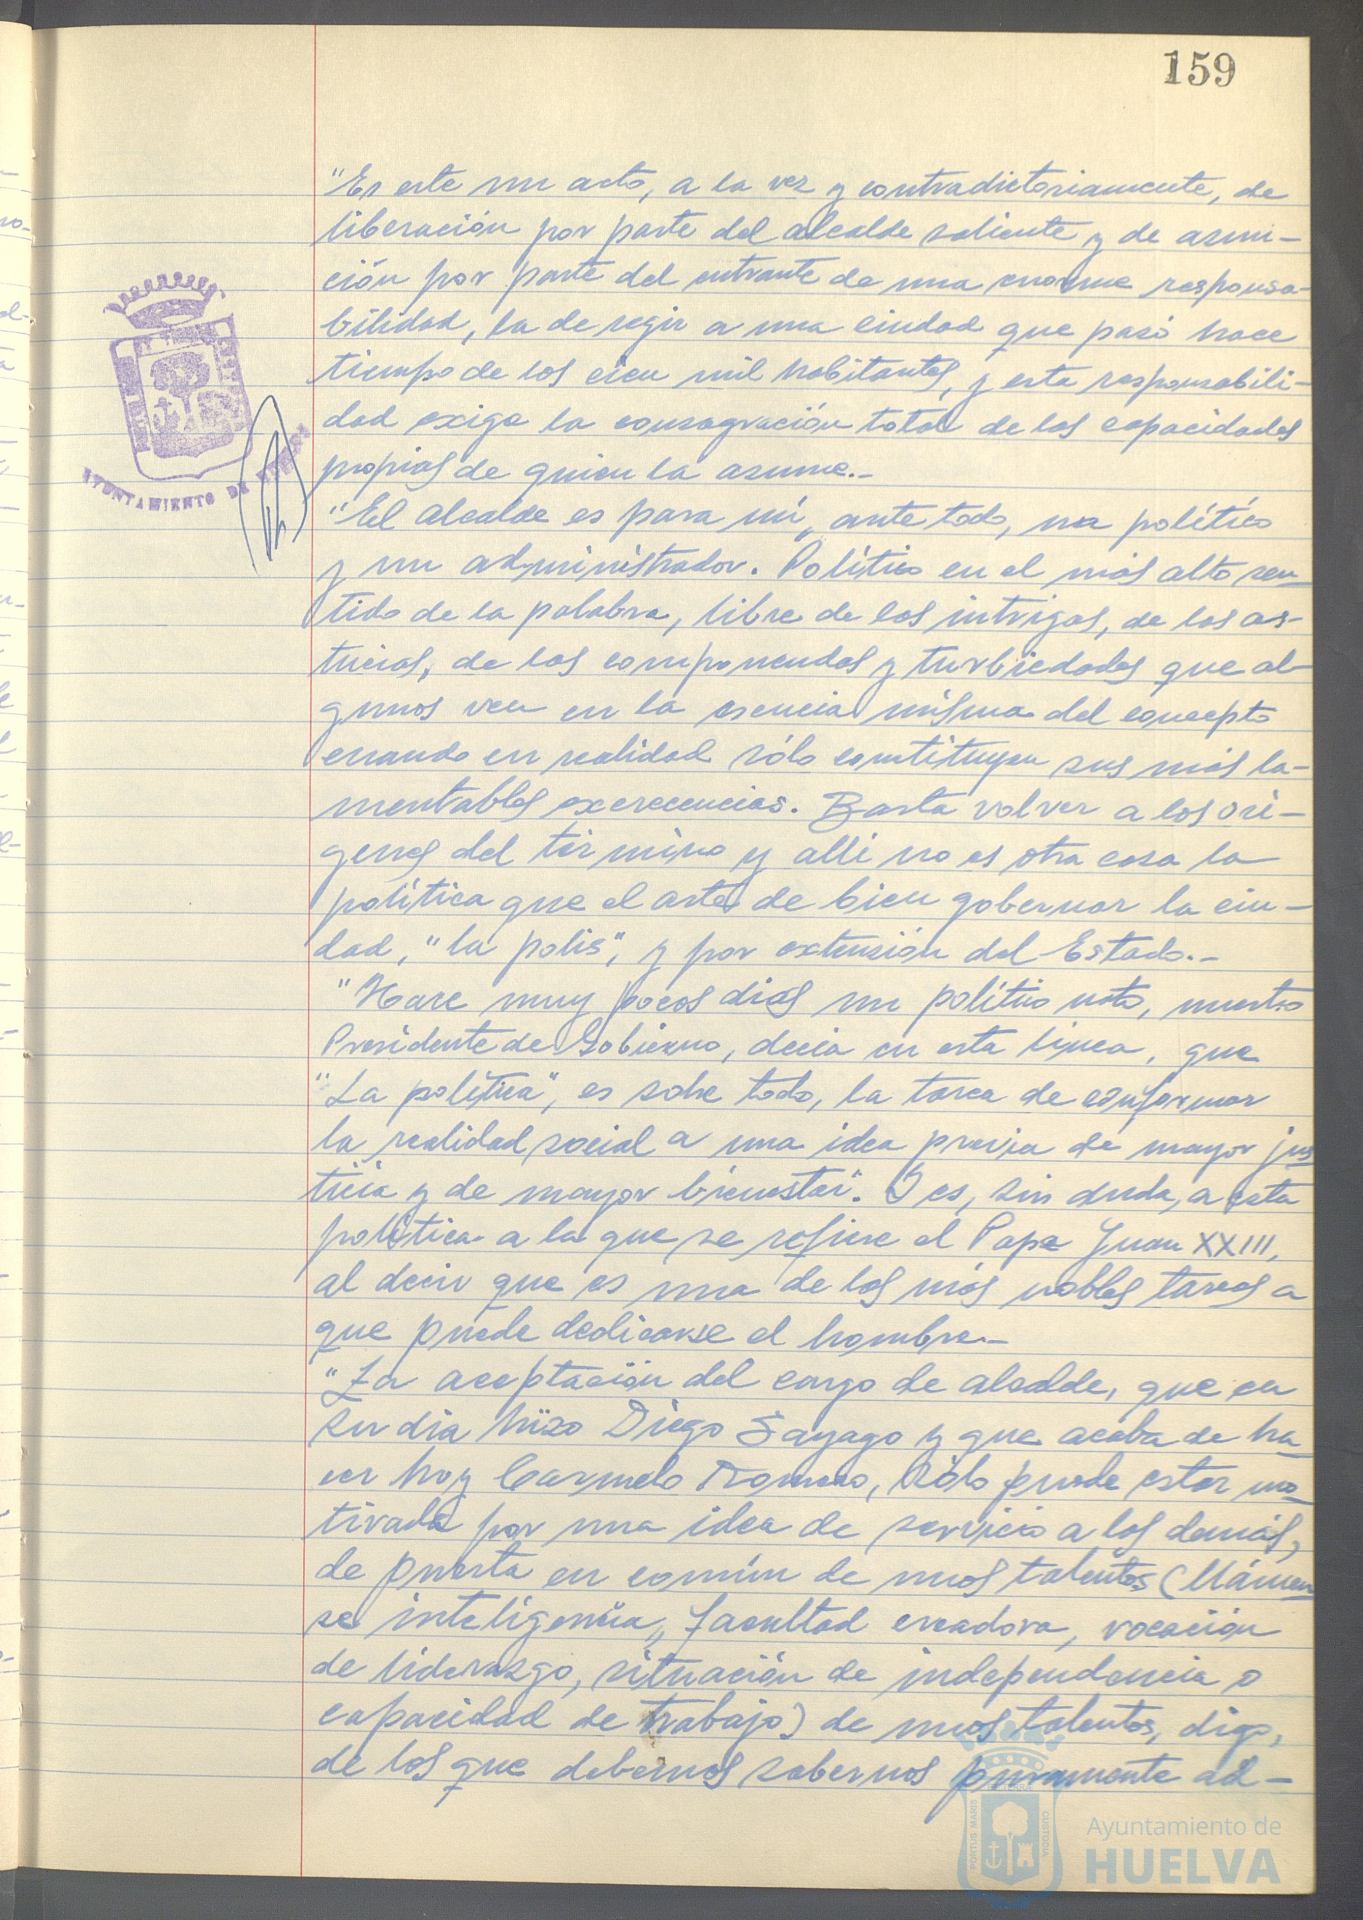 159
"Es este un acto, a la vez y contradictoriamente, de
liberación por parte del alcalde saliente y de asun-
ción por parte del entrante de una enorme responsa-
bilidad, la de regir a una ciudad que pasó hace
tiempo de los cien mil habitantes, y esta responsabili-
dad exige la consagración total de las capacidades
propias de quien la asume.-
"El alcalde es para mí, ante todo, un político
y un administrador. Político en el más alto sen-
tido de la palabra, libre de las intrigas, de las as-
tucias, de las componendas y turbiedades que al-
gunos ven en la esencia misma del concepto
cuando en realidad sólo constituyen sus más la-
mentables excrecencias. Basta volver a los orí-
genes del término y allí no es otra cosa la
política que el arte de bien gobernar la ciu-
dad, "la polis", y por extensión del Estado.-
"Hace muy pocos días un político nato, nuestro
Presidente de Gobierno, decía en esta línea, que
"La política", es sobre todo, la tarea de conformar
la realidad social a una idea previa de mayor jus
ticia y de mayor bienestar". Y es, sin duda, a esta
política a la que se refiere el Papa Juan XXIII,
al decir que es una de las más nobles tareas a
que puede dedicarse el hombre.-
"La aceptación del cargo de alcalde, que en
su día hizo Diego Sayago y que acaba de ha-
cer hoy Carmelo Romero, sólo puede estar mo-
tivada por una idea de servicio a los demás,
de puesta en común de unos talentos (llámen
se inteligencia, facultad creadora, vocación
de liderazgo, situación de independencia o
capacidad de trabajo) de unos talentos, digo,
de los que debemos sabernos puramente ad-
AYUNTAMIENTO DE HUELVA
PORTUS MARIS
CUSTODIA
Ayuntamiento de
HUELVA